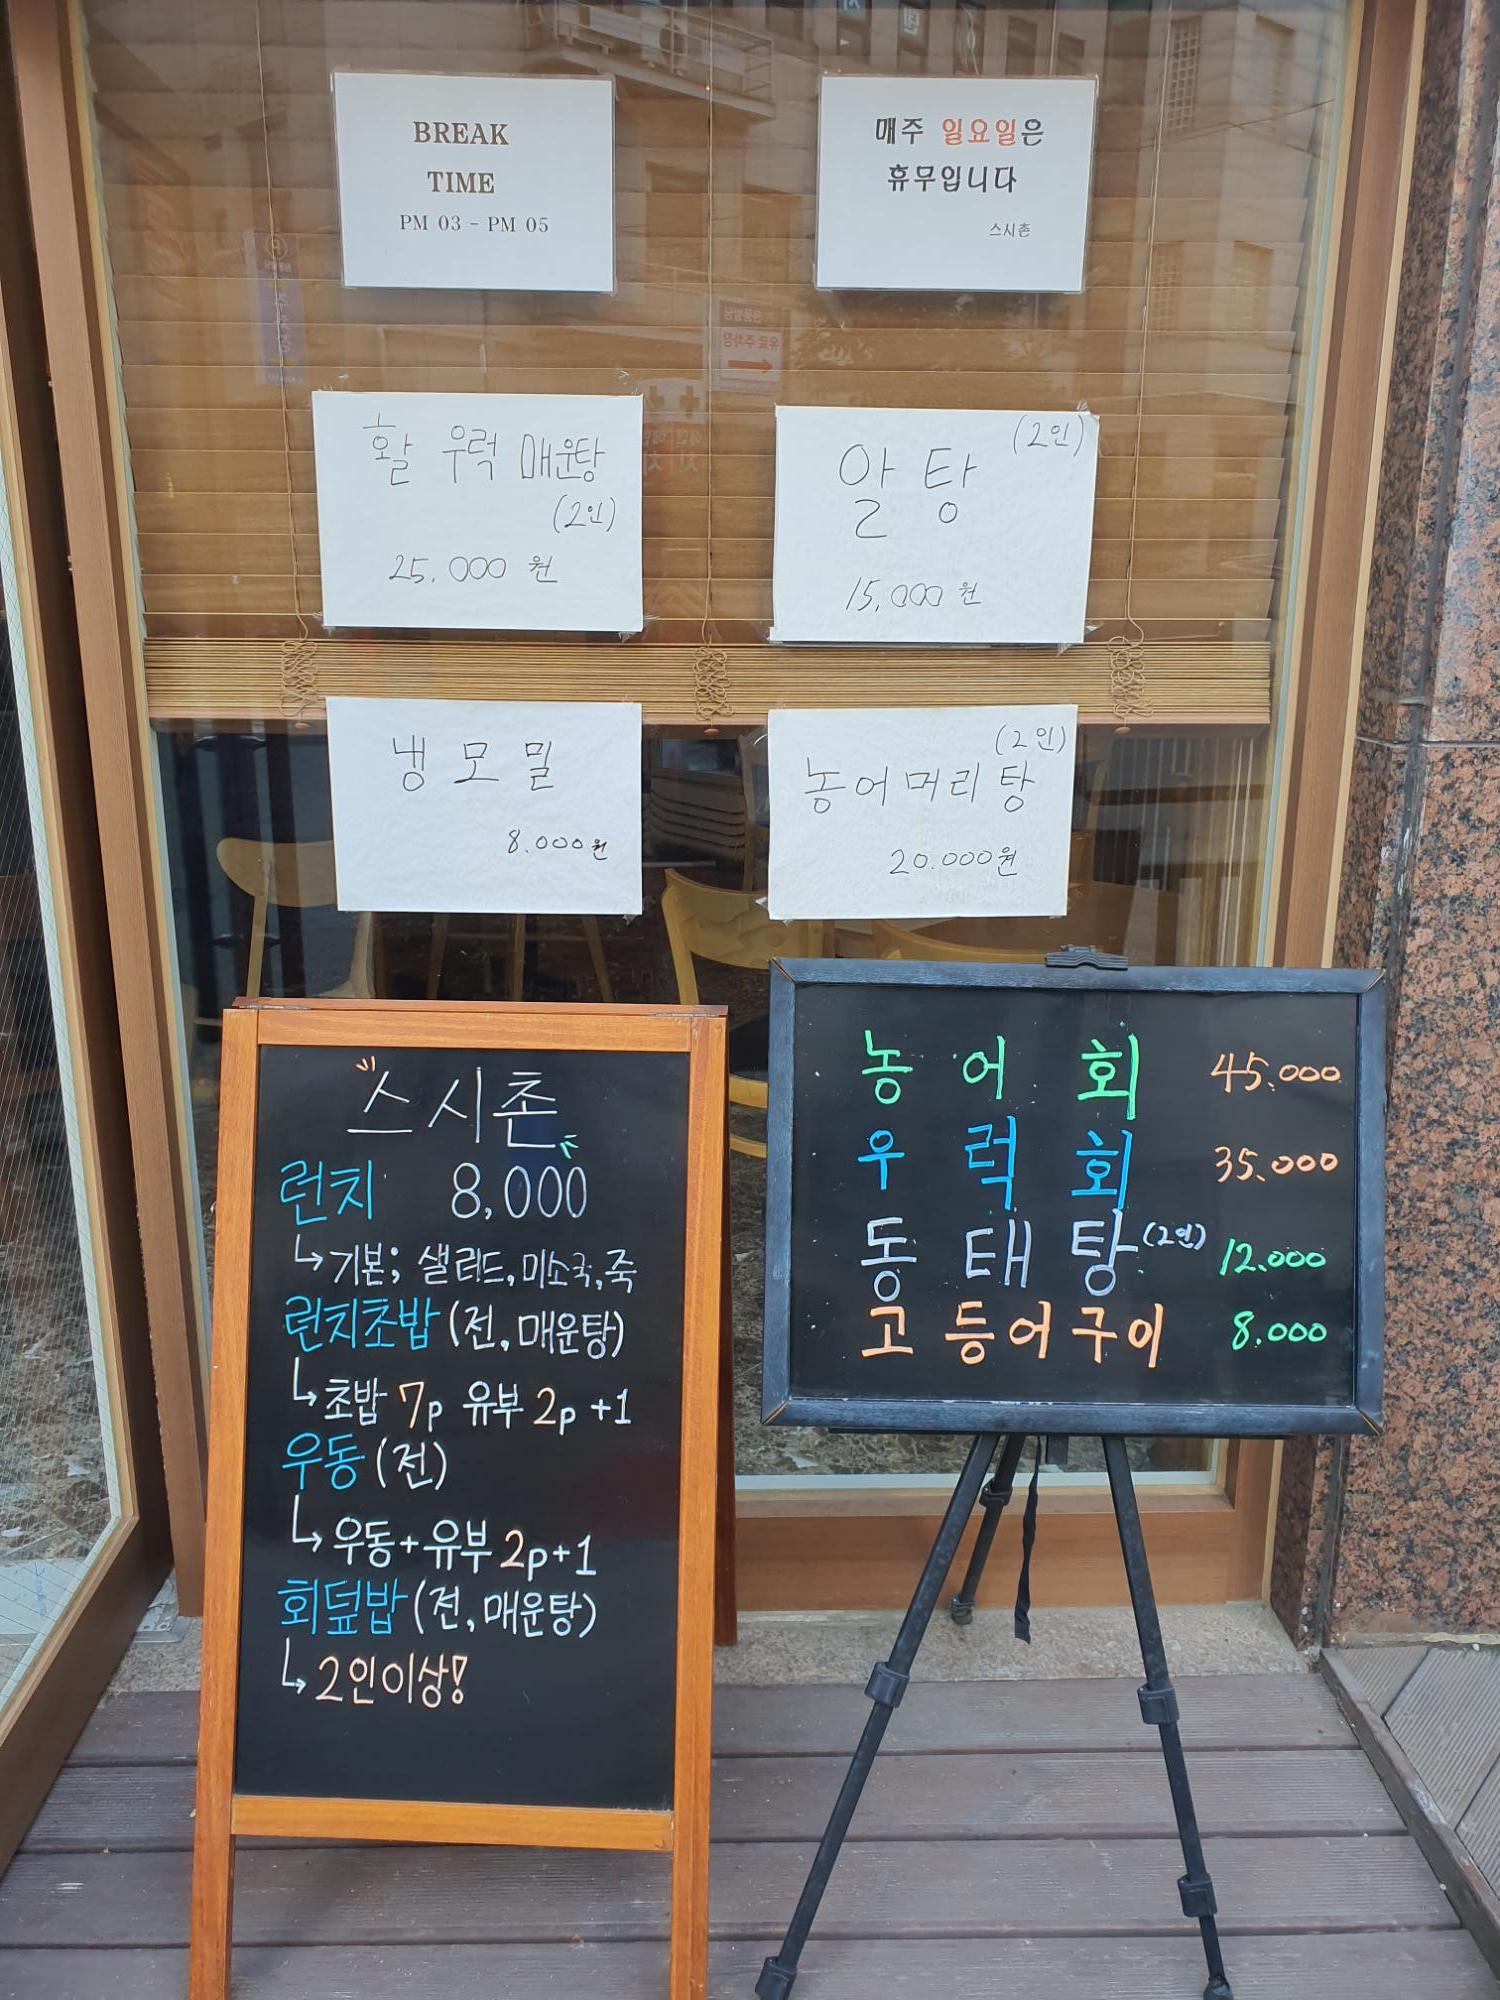 BREAK
TIME
PM 03 - PM 05
매주 일요일은
휴무입니다
스시촌
활 우럭 매운탕
(2인)
25,000 원
(2인)
알 탕
15,000 원
냉 모 밀
8.000원
(2인)
농어머리 탕
20.000원
스시촌
런치 8,000
↳기본; 샐러드,미소국,죽
런치초밥 (전,매운탕)
↳초밥 7p 유부 2p +1
우동 (전)
↳우동+유부 2p+1
회덮밥 (전,매운탕)
↳2인이상!
농 어 회 45.000
우 럭 회 35.000
동 태 탕 (2인) 12.000
고 등어구이 8.000
유료주차장